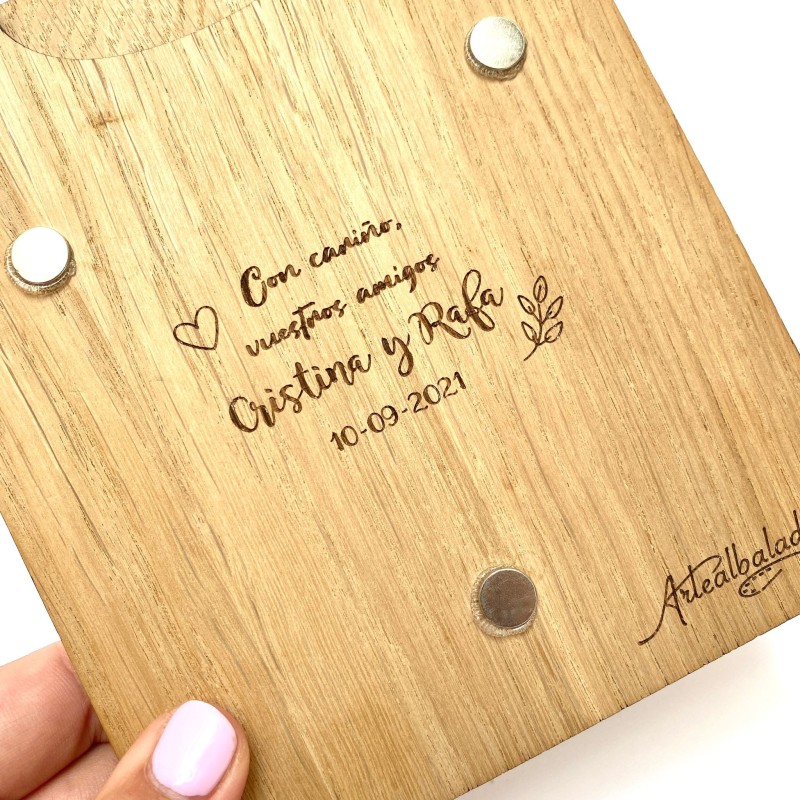 Con cariño,
vuestros amigos
Cristina y Rafa
10-09-2021
Artealbalad